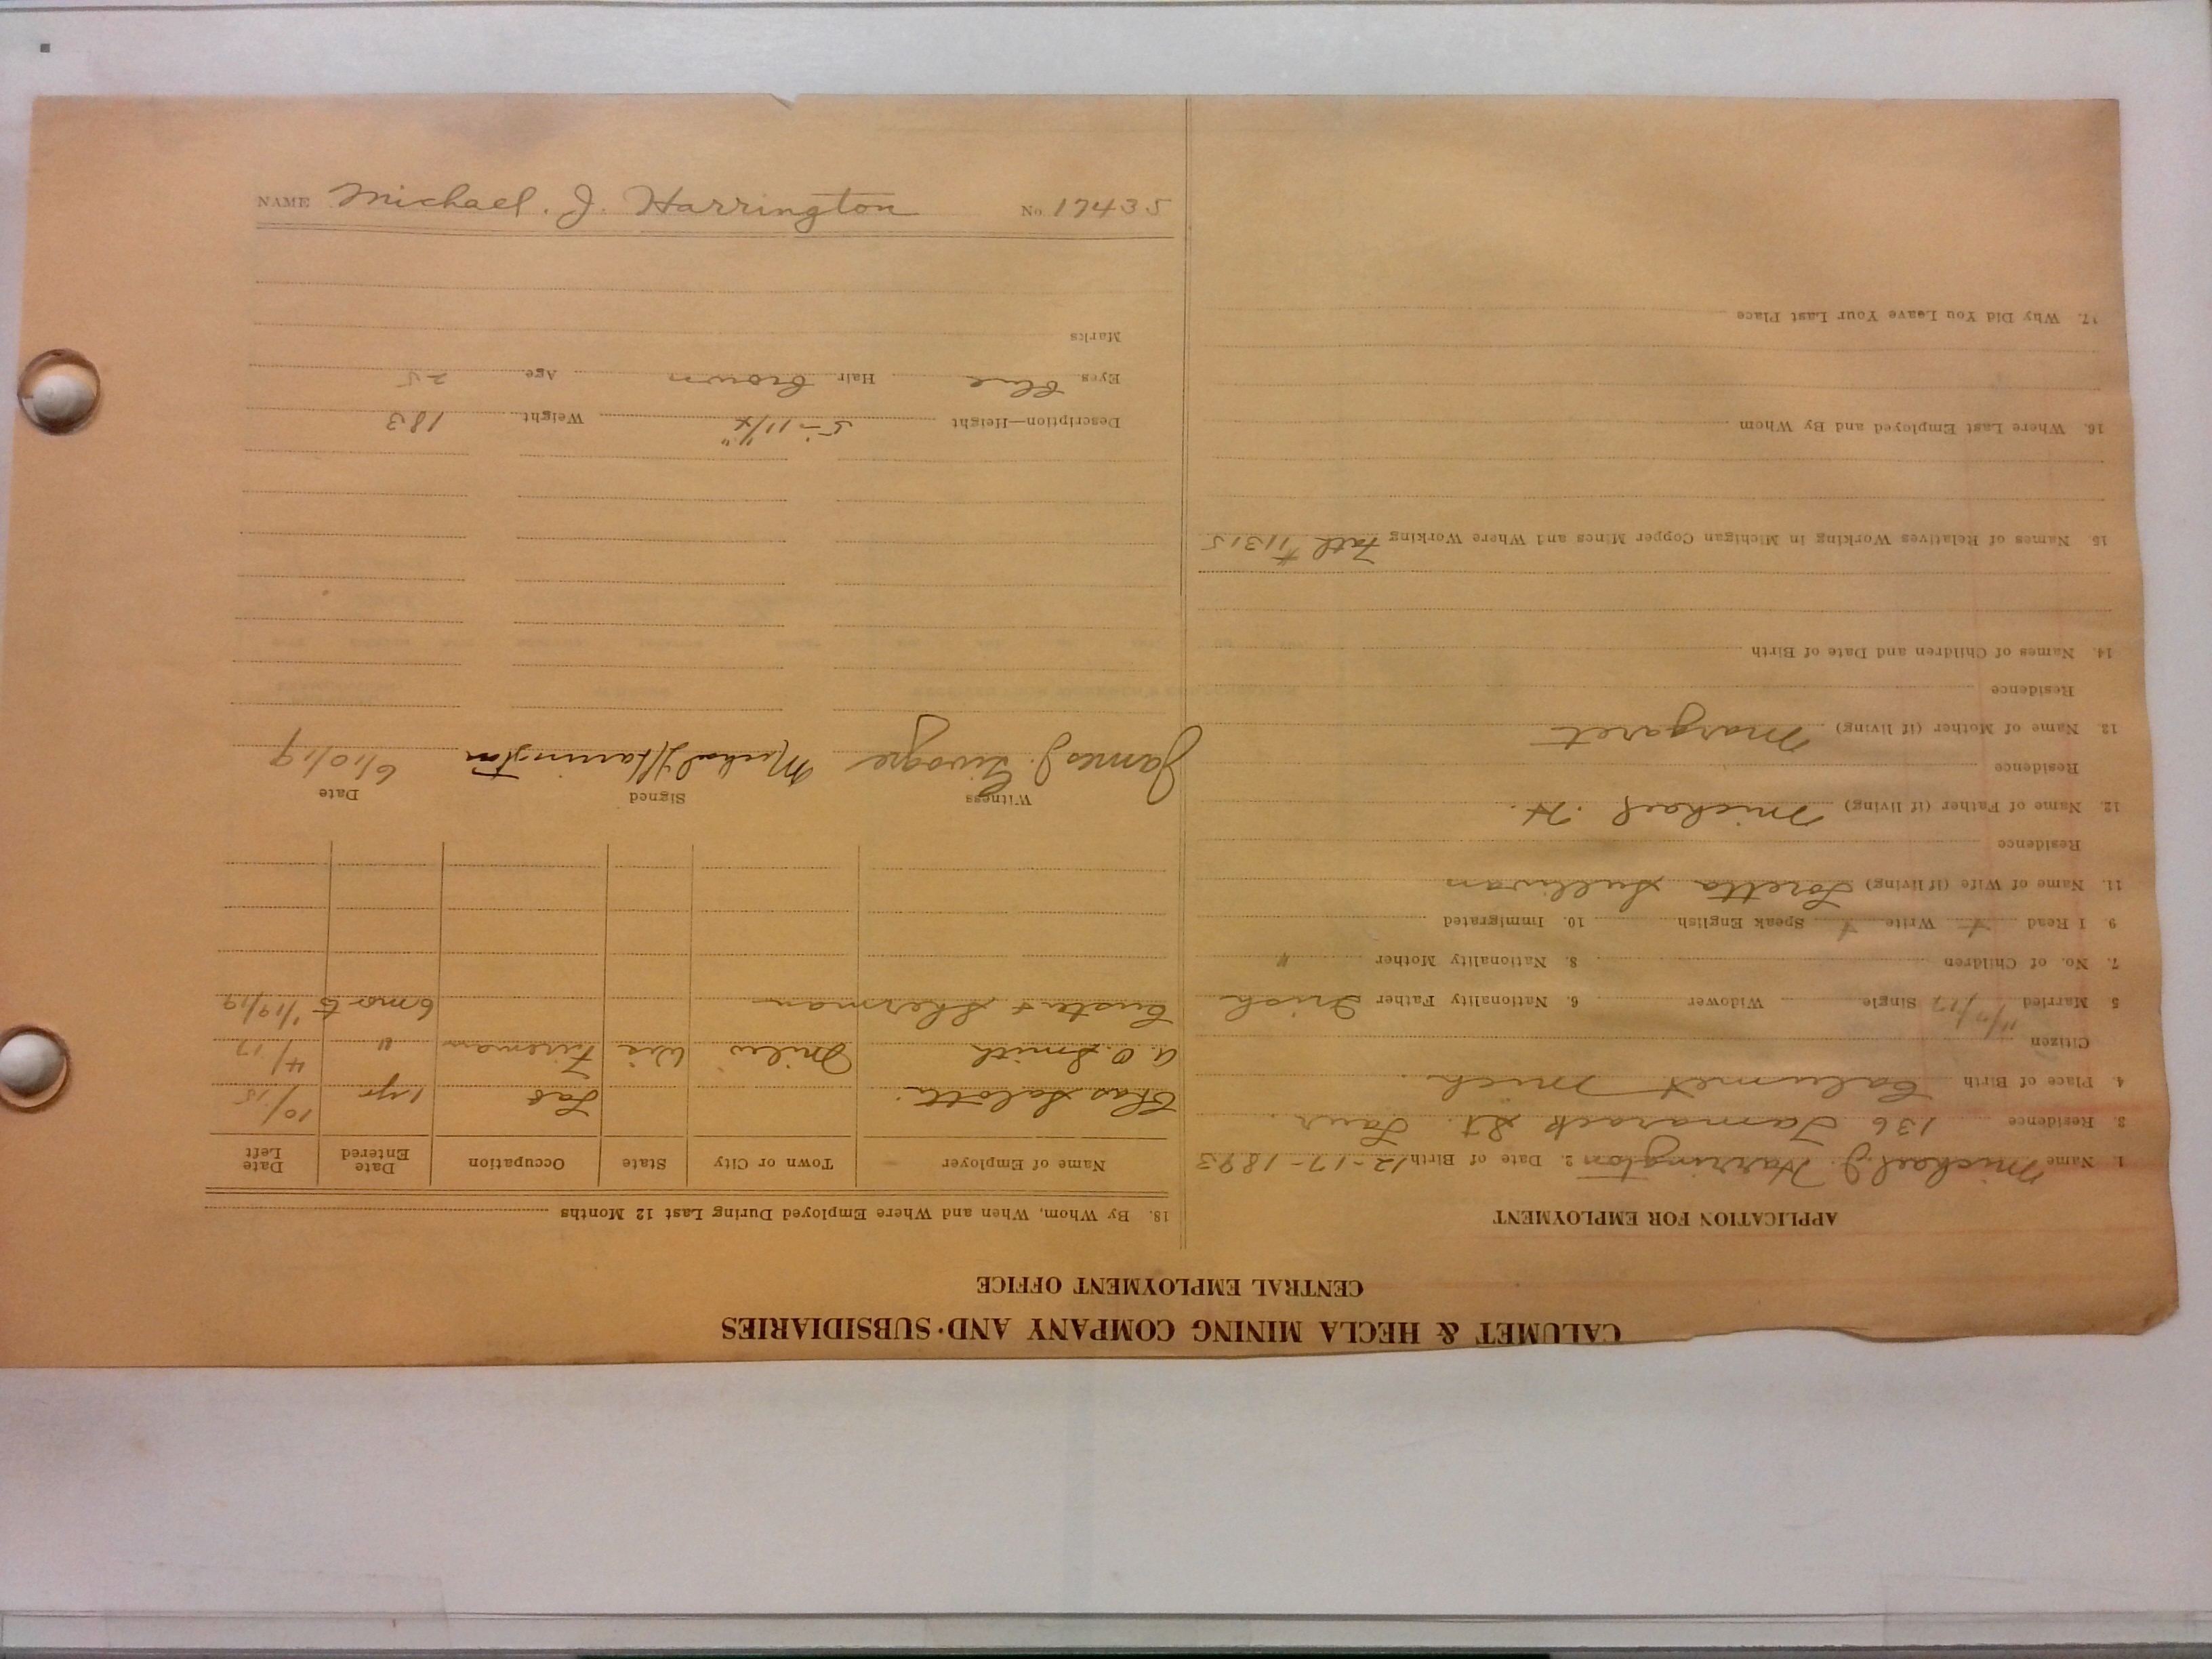 CALUMET & HECLA MINING COMPANY AND SUBSIDIARIES
CENTRAL EMPLOYMENT OFFICE
APPLICATION FOR EMPLOYMENT
1. Name Michael J. Harrington 2. Date of Birth 12-17-1893
3. Residence 136 Tamarack St. Laur.
4. Place of Birth Calumet Mich.
Citizen
5. Married 11/7/17 Single Widower 6. Nationality Father Irish
7. No. of Children 8. Nationality Mother "
9 I Read + Write + Speak English 10. Immigrated
11. Name of Wife (if living) Loretta Sullivan
Residence
12. Name of Father (if living) Michael H.
Residence
13. Name of Mother (if living) Margaret
Residence
14. Names of Children and Date of Birth
15. Names of Relatives Working in Michigan Copper Mines and Where Working Fath #11315
16. Where Last Employed and By Whom
17. Why Did You Leave Your Last Place
18. By Whom, When and Where Employed During Last 12 Months
Name of Employer Town or City State Occupation Date Entered Date Left
Chas Salotti Lab 1 yr 10/15
A. O. Smith Milw Wis Fireman " 4/17
Custer & Sherman 6 mo to 1/19/19
Witness Signed Date
James J. Michael J Harrington 6/10/19
Description—Height 5'-11 1/4" Weight 183
Eyes blue Hair brown Age 25
Marks
NAME Michael. J. Harrington No. 17435